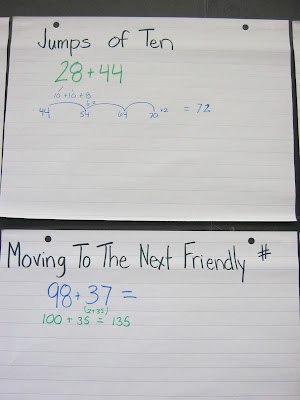 Jumps of Ten
28+44
10+10+8
6+2
44 54 64 70 +2 = 72
Moving To The Next Friendly #
98+37=
(2+35)
100 + 35 = 135